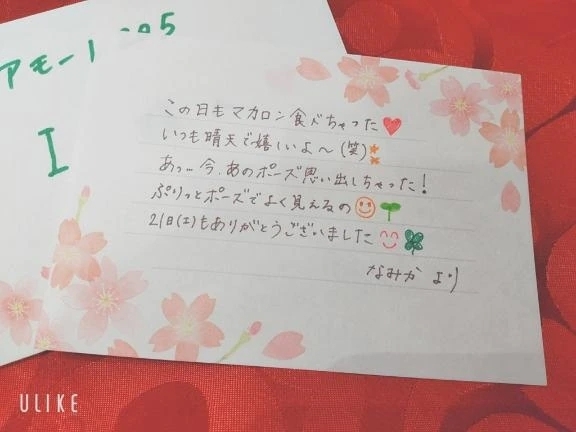 アモーI
I
この日もマカロン食べちゃった
いつも晴天で嬉しいよ～(笑)
あっ…今、あのポーズ思い出しちゃった！
ぷりっとポーズでよく見えるの
21日(土)もありがとうございました
なみか より
ULIKE